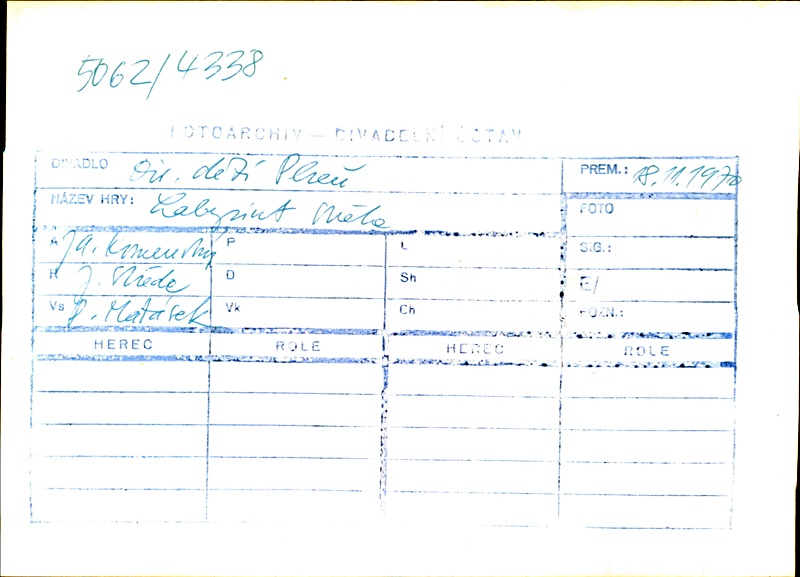 5062/4338
FOTOARCHIV — DIVADELNÍ ÚSTAV
DIVADLO Div. dětí Plzeň PREM.: 18.11.1970
NÁZEV HRY: Labyrint světa FOTO
A J.A. Komenský P L SIG.:
R J. Středa D Sh E/
Vs P. Matásek Vk Ch POZN.:
HEREC ROLE HEREC ROLE